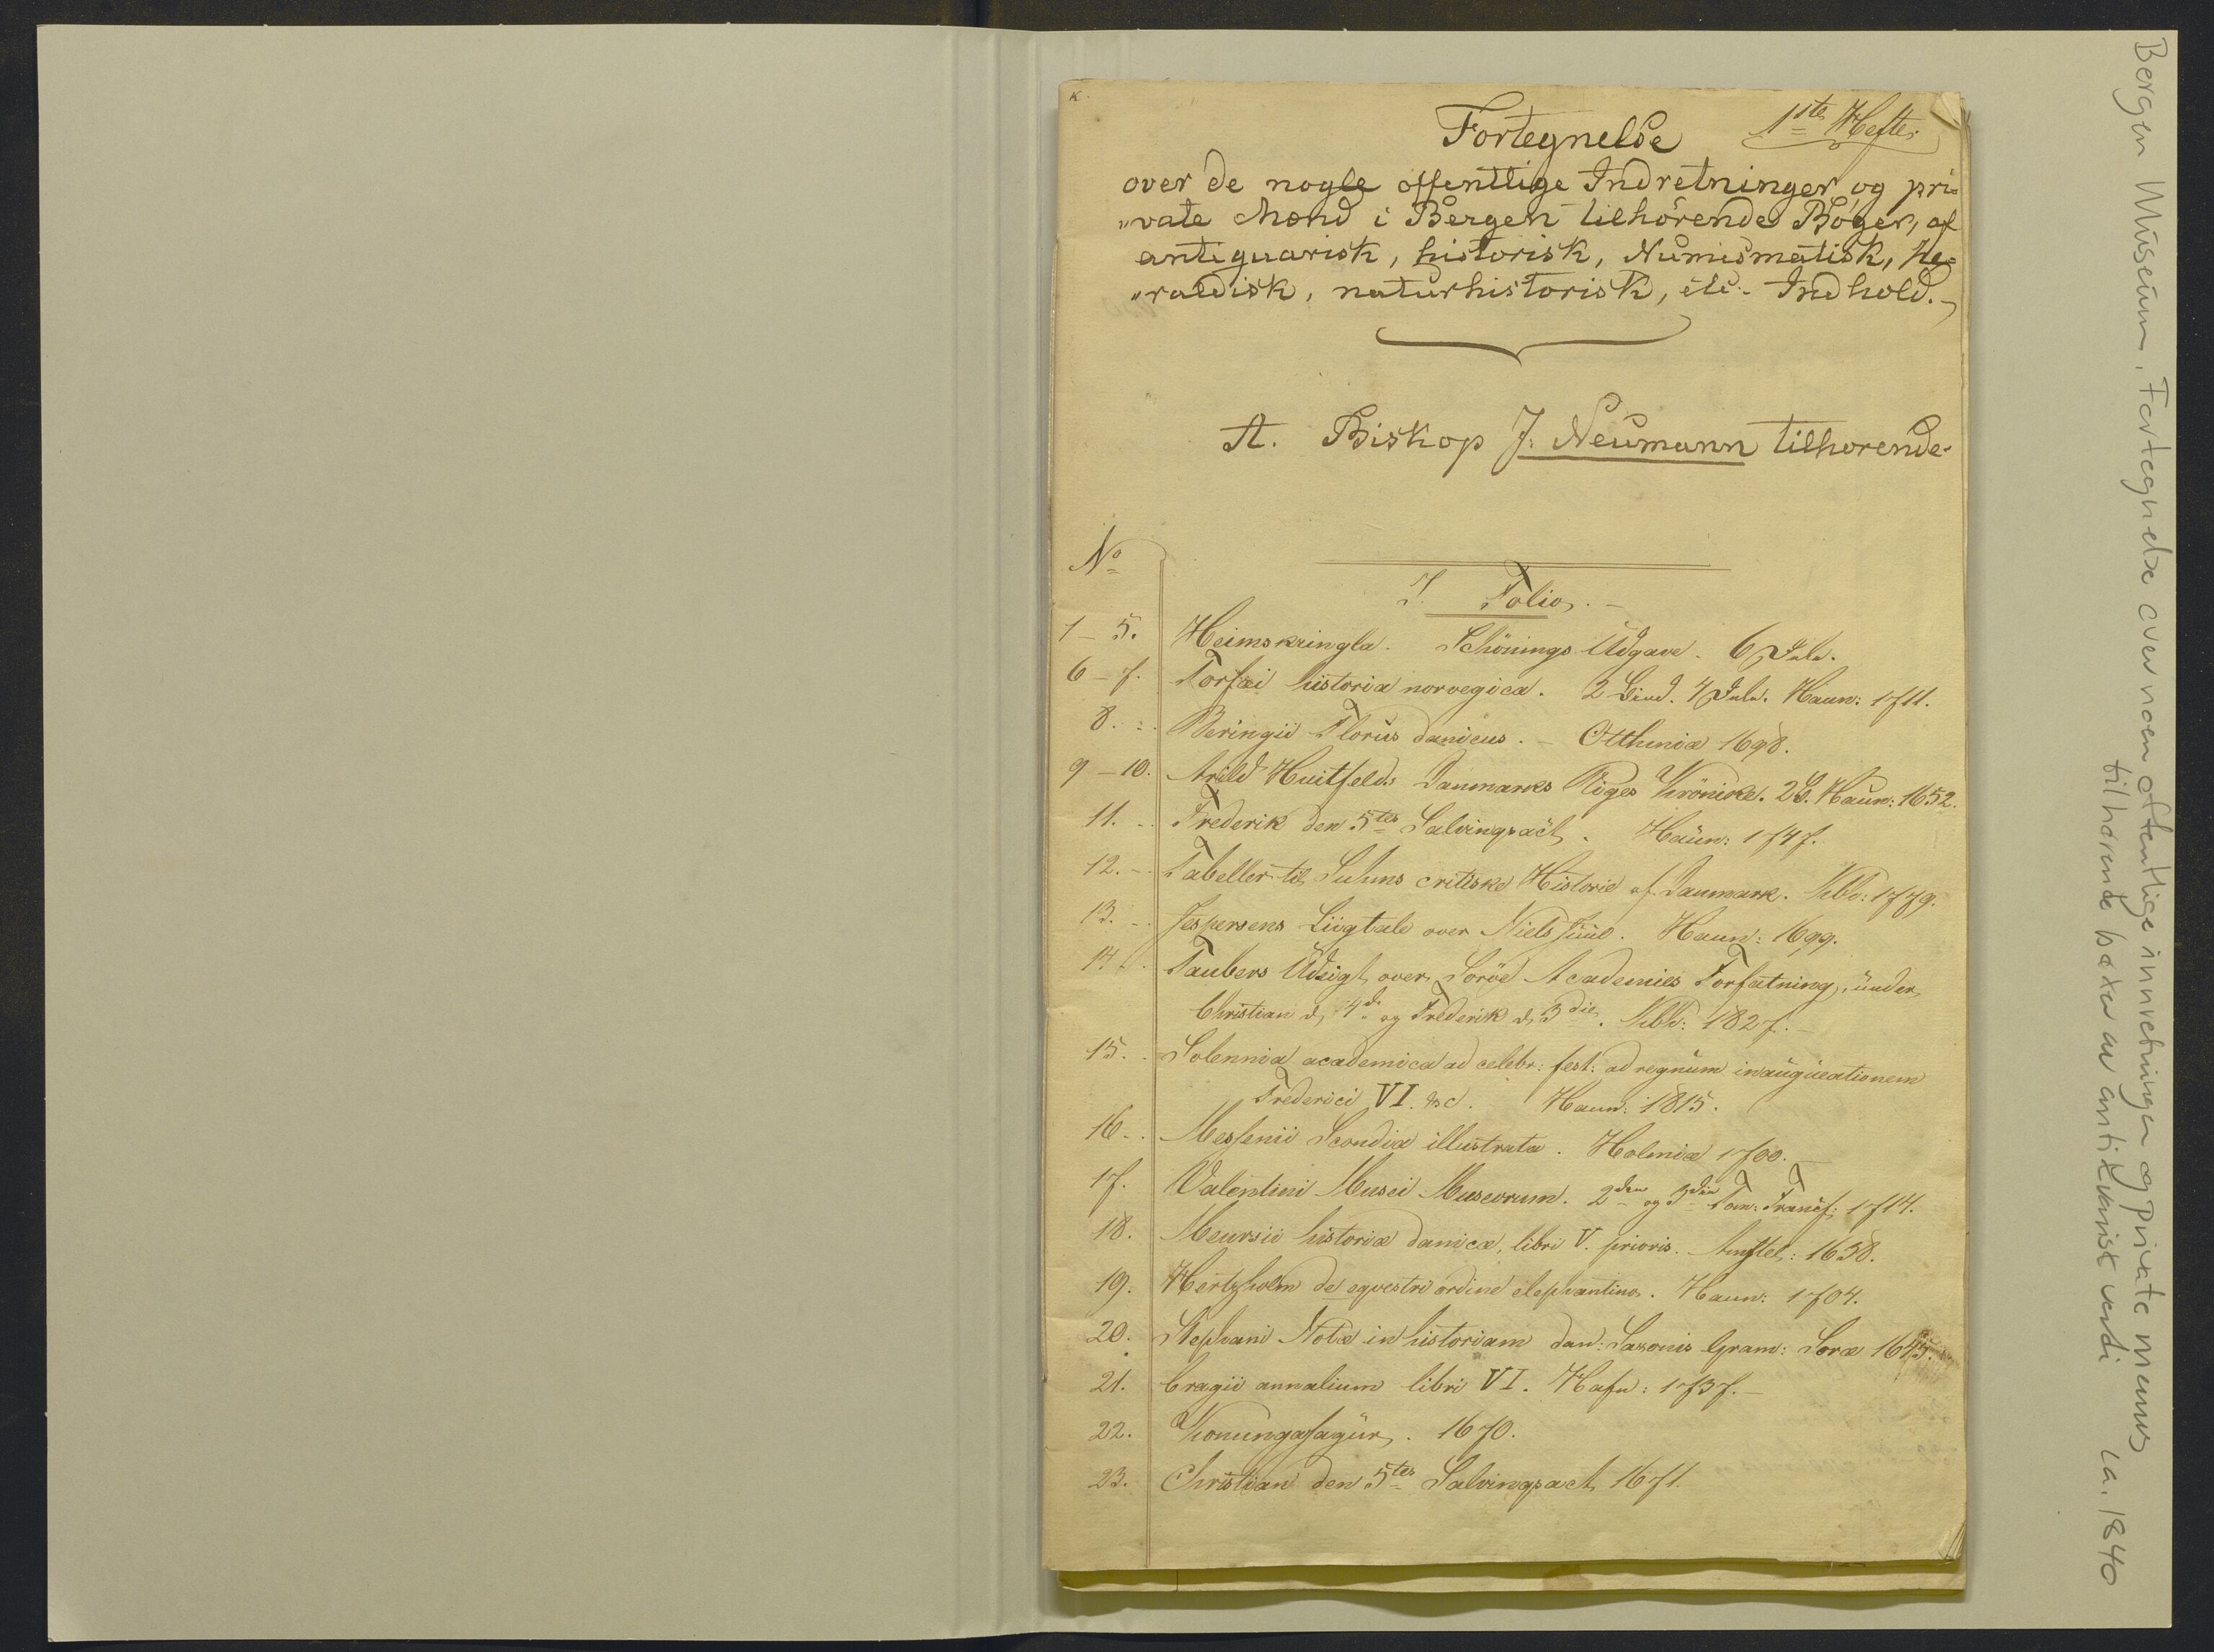 1ste Hefte.
Fortegnelse
over de nogle offentlige Indretninger og pri=
"vate Mænd i Bergen tilhörende Bøger, af
antiquarisk, historisk, Numismatisk, He=
"raldisk, naturhistorisk, etc. Indhold.
A. Biskop J. Neumann tilhorende.
No
I. Folio.
1-5. Heimskringla. Schönings Udgave. 6 Tula.
6-7. Torfæi historia norvegica. 2 Bind. 4 Tula. Haun: 1711.
8. Beringii Florus danicus. - Otthiniæ 1698.
9-10. Arild Huitfelds Danmarks Riges Krönike. 2 B. Haun: 1652.
11. Frederik den 5tes Salvingsact. Haun: 1747.
12. Tabeller til Suhms critiske Historie af Danmark. Kbh: 1779.
13. Jespersens Liigtale over Niels Juul. Haun: 1699.
14. Taubers Udsigt over Soröe Academies Forfatning, under
Christian d. 4de og Frederik d. 3die. Kbh: 1827.
15. Solennia academica ad celebr: fest: ad regnum inaugurationem
Frederici VI. &c. Haun: 1815.
16. Messenii Scondia illustrata. Holmiæ 1700.
17. Valentini Musei Museorum. 2den og 3die Tom: Francf: 1714.
18. Meursii historiæ danicæ, libri V. prioris. Amstel: 1638.
19. Hertzholm de eqvestri ordine elephantino. Haun: 1704.
20. Stephani Notæ in historiam dan: Saxonis Gram: Soræ 1645.
21. Cragii annalium libri VI. Hafn: 1737.
22. Konungasagur. 1670.
23. Christian den 5tes Salvingsact 1671.
Bergen Museum. Fortegnelse over noen offentlige innretninger og private menns
tilhørende bøker av antikvarisk verdi ca. 1840